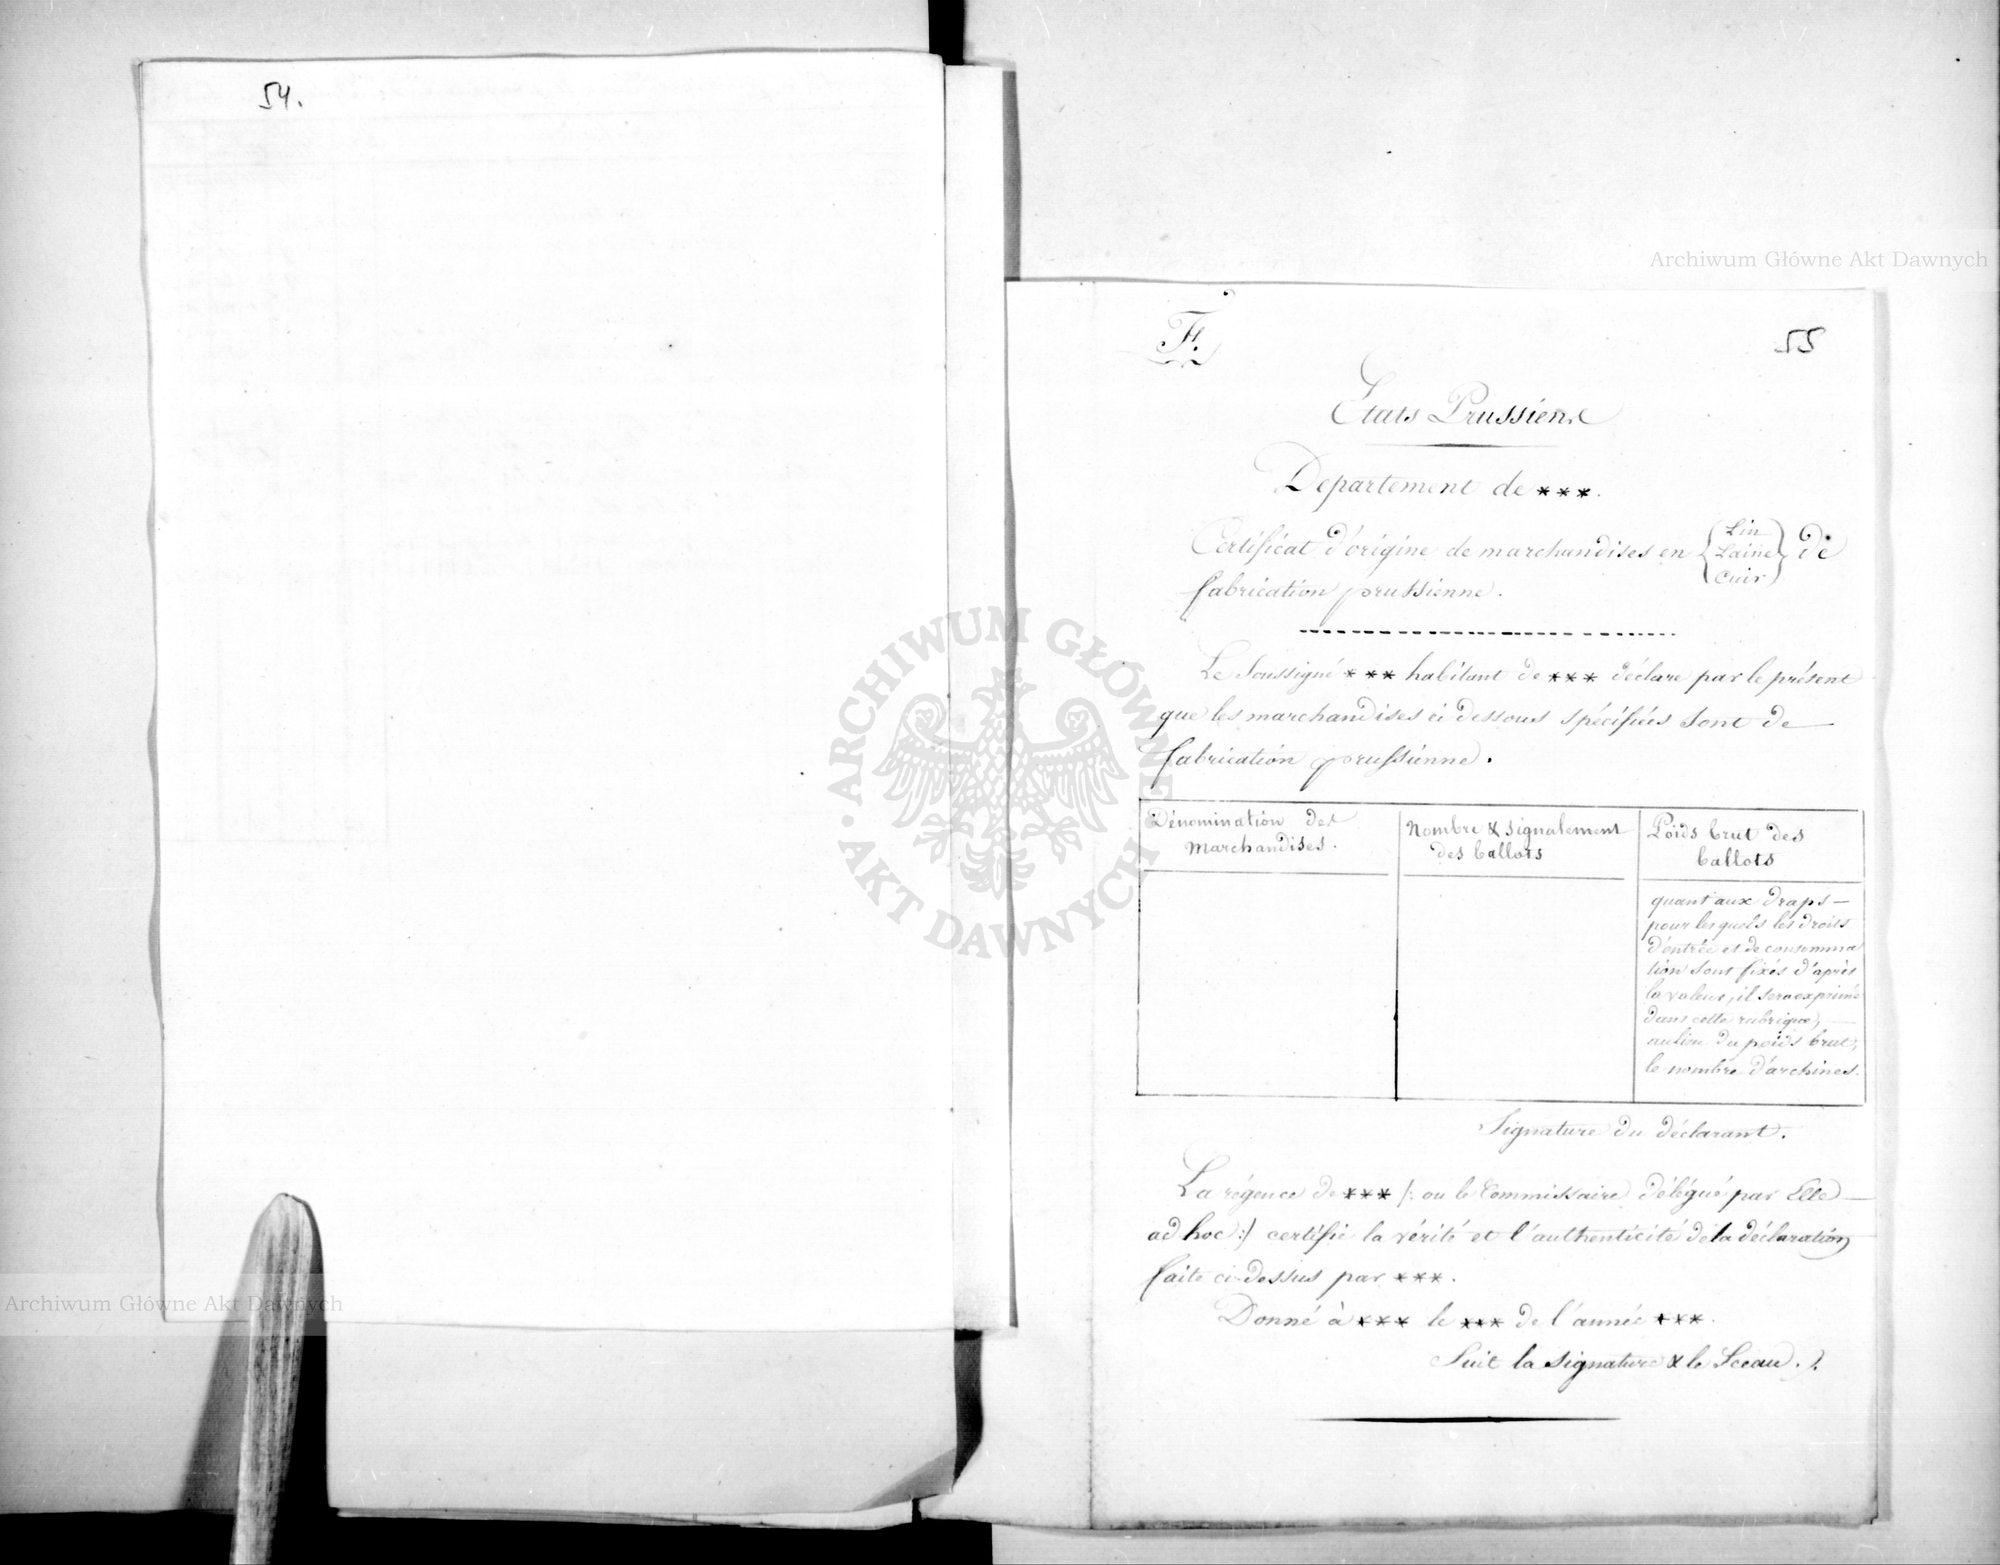 54.
Archiwum Główne Akt Dawnych
F.
55
Etats Prussiens
Departement de ***.
Certificat d'origine de marchandises en { Lin Laine Cuir } de
fabrication prussienne.
Le Soussigné *** habitant de *** déclare par le présent
que les marchandises ci dessous spécifiées sont de
fabrication prussienne.
Dénomination des
Marchandises.
Nombre & signalement
des ballots
Poids brut des
ballots
quant aux draps —
pour les quels les droits
d'entrée et de consomma
tion sont fixés d'après
la valeur, il sera exprimé
dans cette rubrique, —
au lieu du poids brut,
le nombre d'archines.
Signature du déclarant.
La régence de *** /: ou le Commissaire délégué par Elle —
ad hoc :/ certifie la vérité et l'authenticité de la déclaration
faite ci-dessus par ***.
Donné à *** le *** de l'année ***.
Suit la signature & le Sceau.
ARCHIWUM GŁÓWNE
AKT DAWNYCH
Archiwum Główne Akt Dawnych